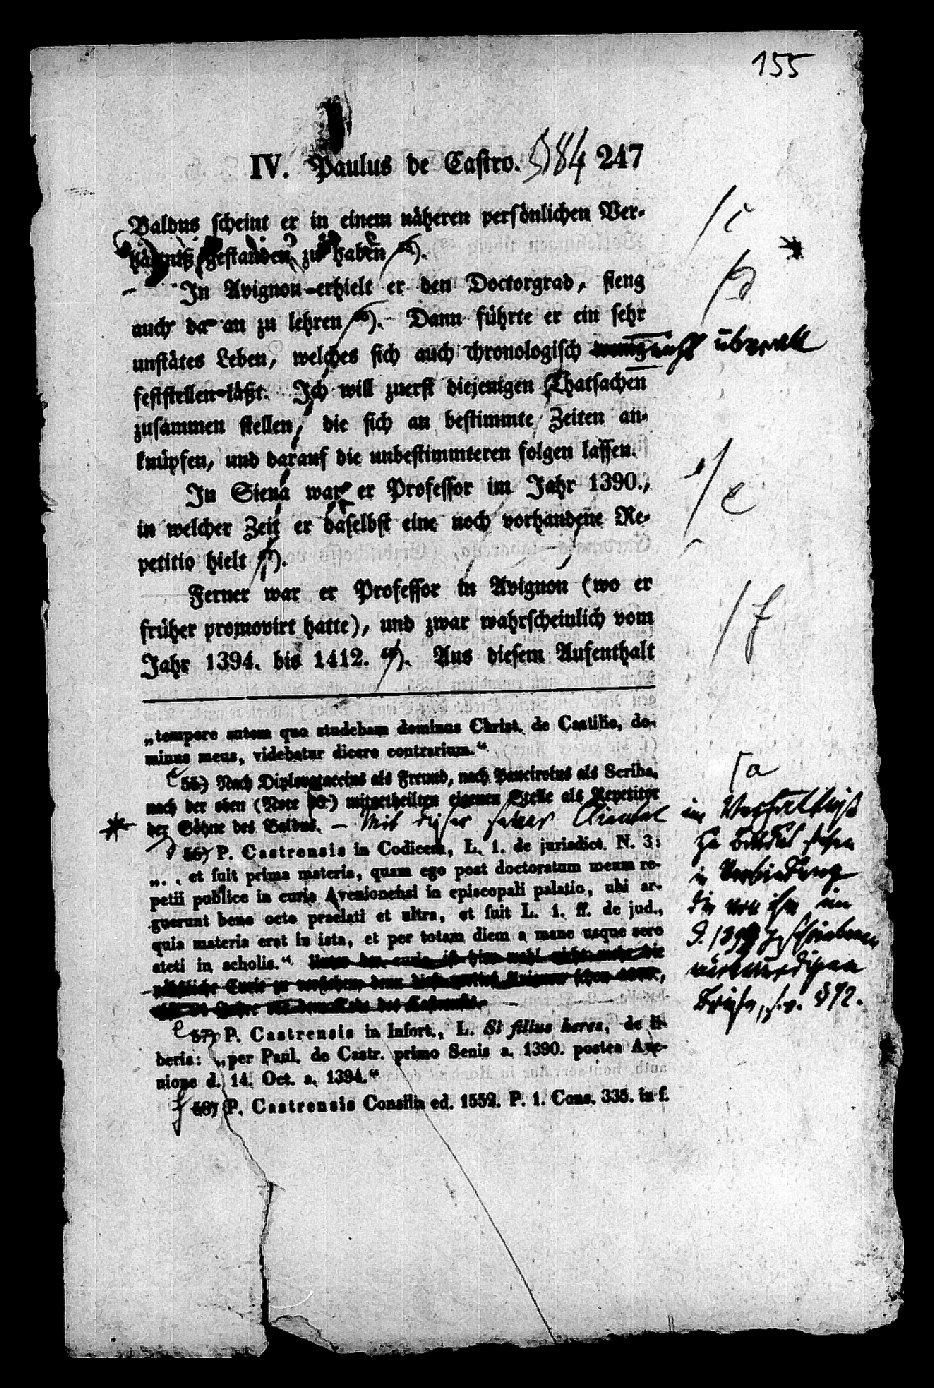 155
IV. Paulus de Castro. 584 247
Baldus scheint er in einem näheren persönlichen Ver-
hältniß gestanden zu haben 55).
In Avignon erhielt er den Doctorgrad, fieng
auch da an zu lehren 56). Dann führte er ein sehr
unstätes Leben, welches sich auch chronologisch nicht überall
feststellen läßt. Ich will zuerst diejenigen Thatsachen
zusammen stellen, die sich an bestimmte Zeiten an-
knüpfen, und darauf die unbestimmteren folgen lassen.
In Siena war er Professor im Jahr 1390.,
in welcher Zeit er daselbst eine noch vorhandene Re-
petitio hielt 57).
Ferner war er Professor in Avignon (wo er
früher promovirt hatte), und zwar wahrscheinlich vom
Jahr 1394. bis 1412. 58). Aus diesem Aufenthalt
„tempore autem quo studebam dominus Christ. de Castilio, do-
minus meus, videbatur dicere contrarium.“
c 55) Nach Diplovataccius als Freund, nach Pancirolus als Scriba,
nach der oben (Note 50.) mitgetheilten eigenen Stelle als Repetitor
der Söhne des Baldus. — Mit dieser seiner Clientel
d 56) P. Castrensis in Codicem, L. 1. de jurisdict. N. 3:
„. . et fuit prima materia, quam ego post doctoratum meum re-
petii publice in curia Avenionensi in episcopali palatio, ubi ar-
guerunt bene octo praelati et ultra, et fuit L. 1. ff. de jud.,
quia materia erat in ista, et per totam diem a mane usque sero
steti in scholis.“
e 57) P. Castrensis in Infort., L. Si filius heres, de li-
beris: „per Paul. de Castr. primo Senis a. 1390. postea Ave-
nione d. 14. Oct. a. 1394.“
f 58) P. Castrensis Consilia ed. 1552. P. 1. Cons. 335. in f.
c
d
e
f
a
im Verhältniß
zu Baldus stehen
in Verbindung
die von ihm im
J. 1399 geschriebenen
merkwürdigen
Briefe, s. o. §92.